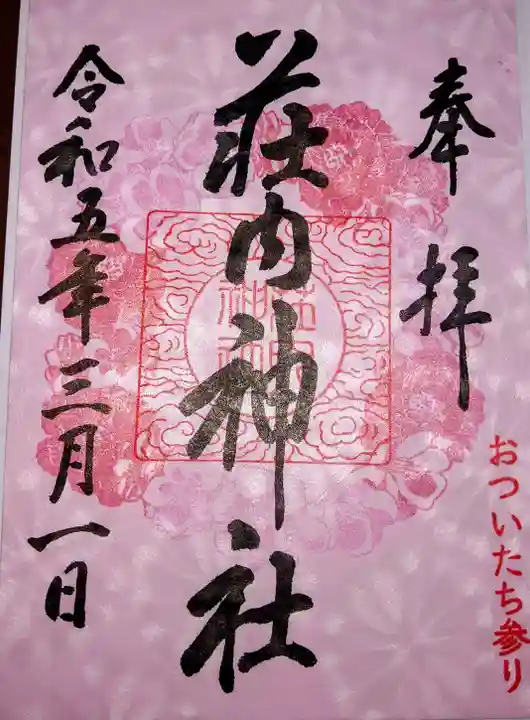 奉拝
おついたち参り
荘内神社
令和五年三月一日